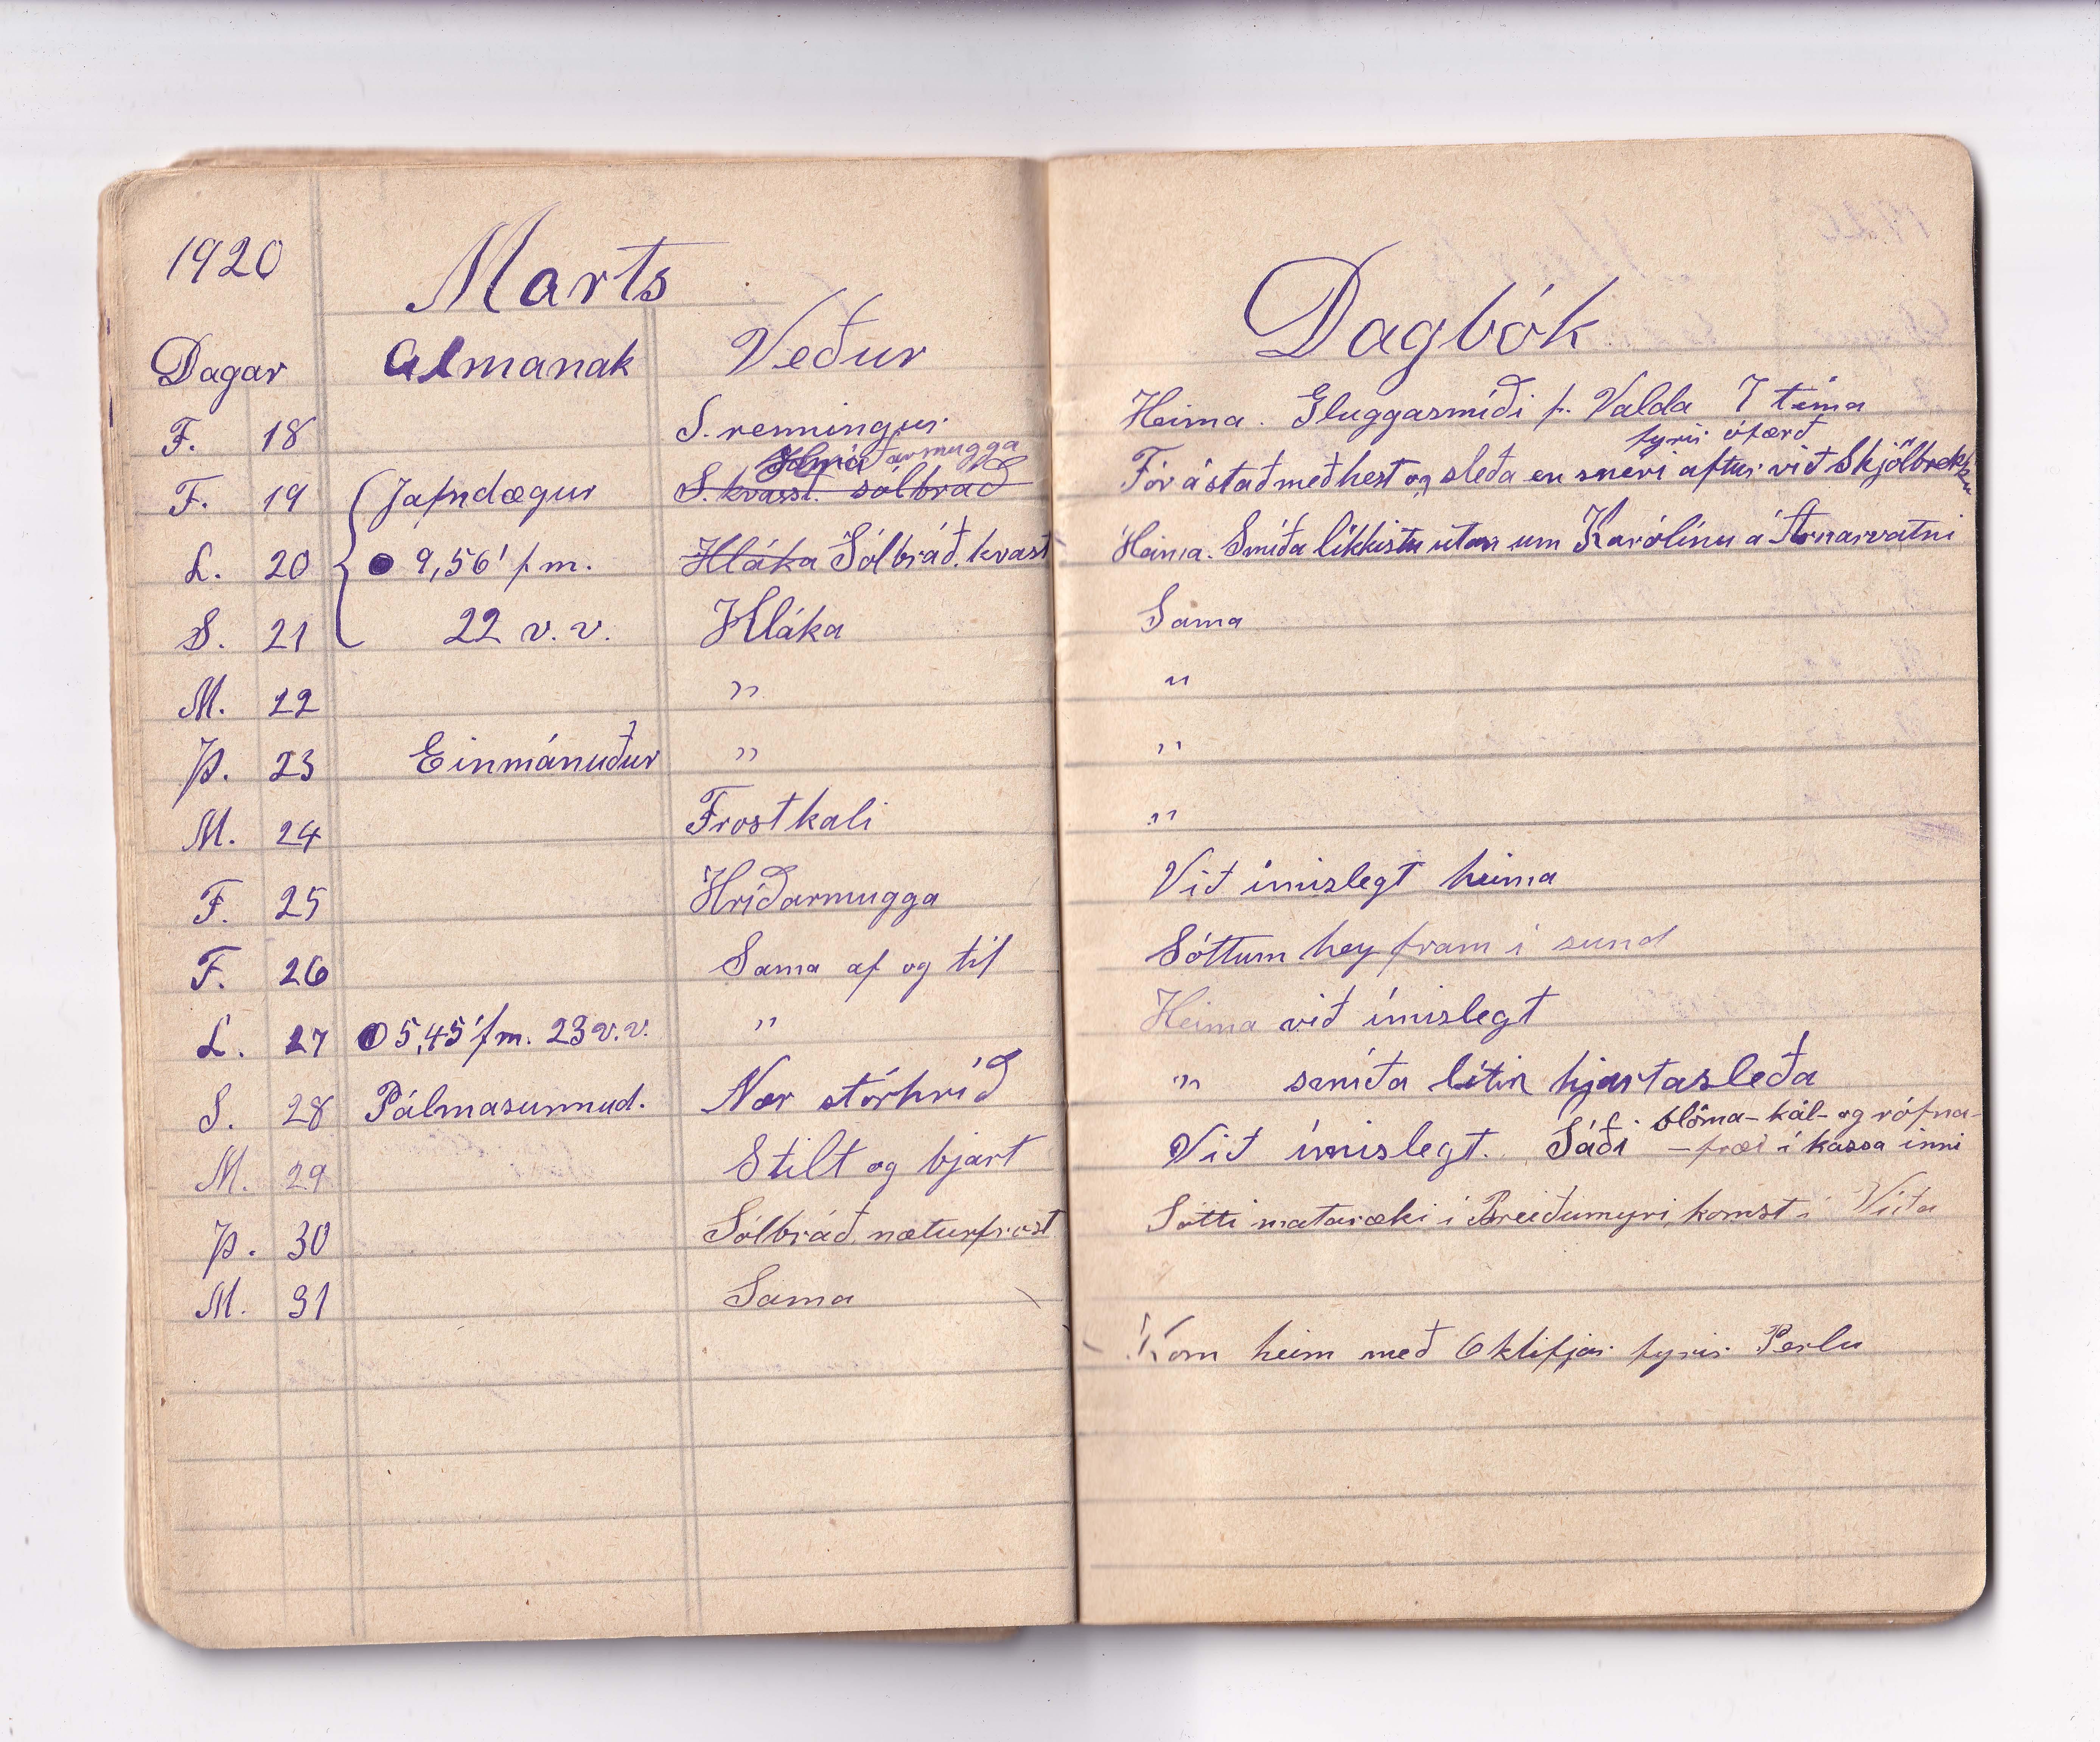 1920
Marts
Dagar Almanak Veður
F. 18 S. renningur
Hríðarmugga
F. 19 Jafndægur S. kvasst. sólbráð
L. 20 9,56' f m. Hláka Sólbráð. kvast
S. 21 22 v. v. Hláka
M. 22 "
Þ. 23 Einmánuður "
M. 24 Frostkali
F. 25 Hríðarmugga
F. 26 Sama af og til
L. 27 5,45' fm. 23 v. v. "
S. 28 Pálmasunnud. Nær stórhríð
M. 29 Stilt og bjart
Þ. 30 Sólbráð, næturfrost
M. 31 Sama
Dagbók
Heima. Gluggasmíði f. Valda 7 tíma
fyrir ófærð
Fór á stað með hest og sleða en sneri aftur við Skjölbrekku
Heima. Smíða líkkistu utan um Karólínu á Arnarvatni
Sama
"
"
"
Við ímislegt heima
Sóttum hey fram í sund
Heima við ímislegt
" smíða lítin hjartasleða
blóma- kál- og rófna-
Við ímislegt. Sáði -fræi í kassa inni
Sótti mataræki í Breiðumýri, komst í Víða
Kom heim með 6 kl fyrir Perlu